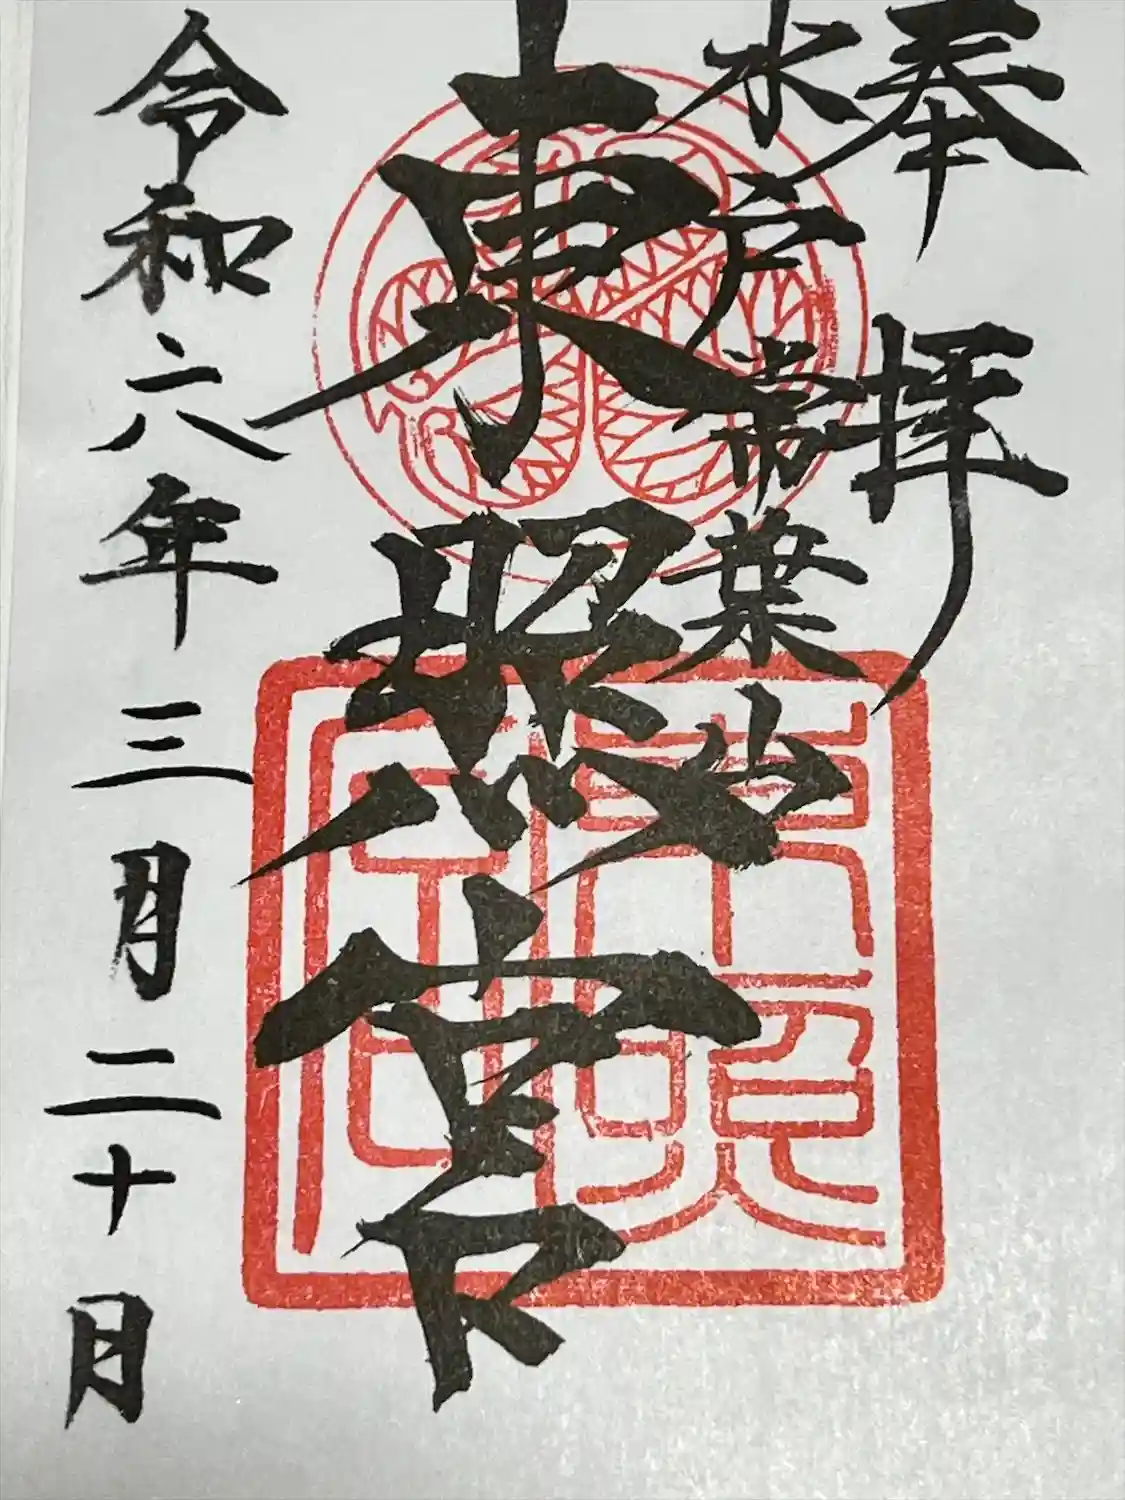 奉拝
水戸常葉山
東照宮
東照宮印
令和六年三月二十日